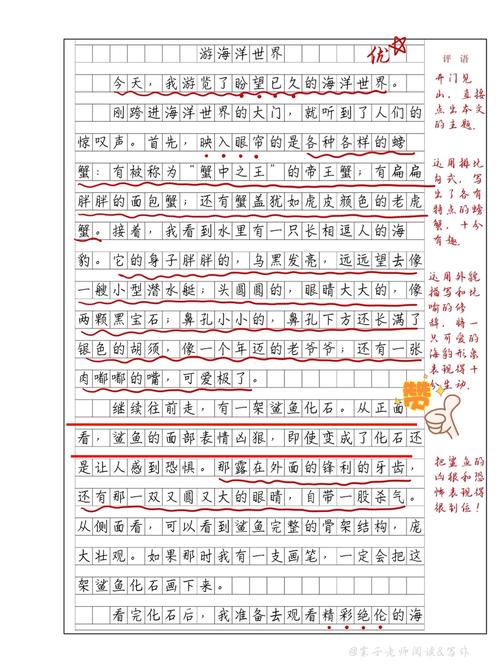 游海洋世界
优
评语
今天，我游览了盼望已久的海洋世界。
刚跨进海洋世界的大门，就听到了人们的
惊叹声。首先，映入眼帘的是各种各样的螃
蟹：有被称为“蟹中之王”的帝王蟹；有扁扁
胖胖的面包蟹；还有蟹盖犹如虎皮颜色的老虎
蟹。接着，我看到水里有一只长相逗人的海
豹。它的身子胖胖的，乌黑发亮，远远望去像
一艘小型潜水艇；头圆圆的，眼睛大大的，像
两颗黑宝石；鼻孔小小的，鼻孔下方还长满了
银色的胡须，像一个年迈的老爷爷；还有一张
肉嘟嘟的嘴，可爱极了。
继续往前走，有一架鲨鱼化石。从正面
看，鲨鱼的面部表情凶狠，即使变成了化石还
是让人感到恐惧。那露在外面的锋利的牙齿，
还有那一双又圆又大的眼睛，自带一股杀气。
从侧面看，可以看到鲨鱼完整的骨架结构，庞
大壮观。如果那时我有一支画笔，一定会把这
架鲨鱼化石画下来。
看完化石后，我准备去观看精彩绝伦的海
开门见
山，直接
点出本文
的主题。
运用排比
句式，写
出了各有
特点的螃
蟹，十分
有趣。
运用外貌
描写和比
喻的修
辞，将一
只可爱的
海豹形象
表现得十
分生动。
赞
把鲨鱼的
凶狠和恐
怖表现得
很到位！
@棠子老师阅读&写作